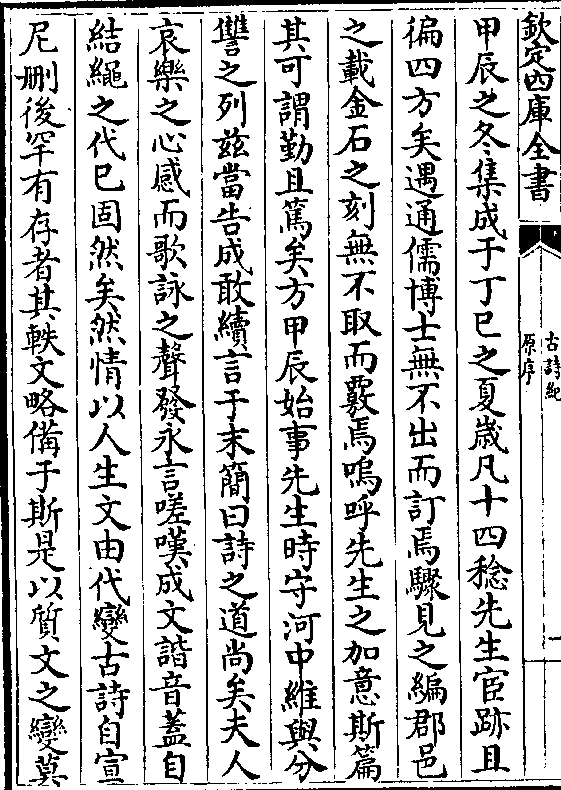 欽定四庫全書
古詩紀
原序
一
甲辰之冬集成于丁巳之夏歲凡十四稔先生宦跡且
徧四方矣遇通儒博士無不出而訂焉驟見之編郡邑
之載金石之刻無不取而覈焉嗚呼先生之加意斯篇
其可謂勤且篤矣方甲辰始事先生時守河中維與分
讐之列兹當告成敢續言于末簡曰詩之道尚矣夫人
哀樂之心感而歌詠之聲發永言嗟嘆成文諧音蓋自
結繩之代已固然矣然情以人生文由代變古詩自宣
尼删後罕有存者其軼文略備于斯是以質文之變莫